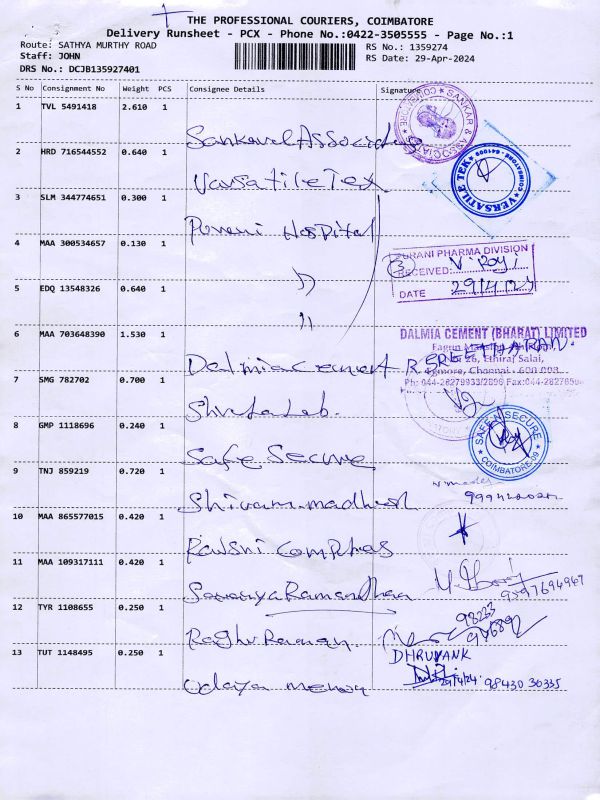 THE PROFESSIONAL COURIERS, COIMBATORE
Delivery Runsheet - PCX - Phone No.:0422-3505555 - Page No.:1
Route: SATHYA MURTHY ROAD
Staff: JOHN
DRS No.: DCJB135927401
RS No.: 1359274
RS Date: 29-Apr-2024
S No Consignment No Weight PCS Consignee Details Signature
1 TVL 5491418 2.610 1
SANKAR & ASSOCIATES
2 HRD 716544552 0.640 1
VERSATILE TEK
3 SLM 344774651 0.300 1
Purani Hospital
4 MAA 300534657 0.130 1
"
PURANI PHARMA DIVISION
RECEIVED: V. Royi
DATE 29/4/24
5 EDQ 13548326 0.640 1
"
6 MAA 703648390 1.530 1
Dalmia cement
DALMIA CEMENT (BHARAT) LIMITED
R SREETHARAN.
Ethiraj Salai,
Egmore, Chennai - 600 008
7 SMG 782702 0.700 1
8 GMP 1118696 0.240 1
Safe Secure
SAFE N SECURE
COIMBATORE
9 TNJ 859219 0.720 1
Shivam madhesh
10 MAA 865577015 0.420 1
11 MAA 109317111 0.420 1
12 TYR 1108655 0.250 1
Raghu Raman.
13 TUT 1148495 0.250 1
DHRUVANK
29/4/24. 98430 30335